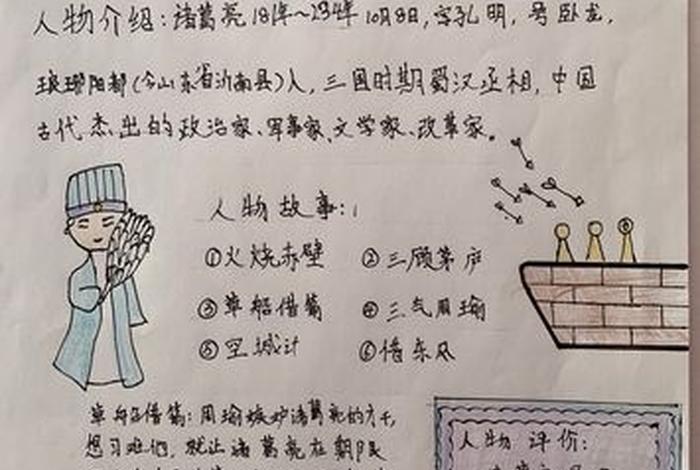 人物介绍:诸葛亮181年~234年10月8日,字孔明,号卧龙,
琅琊阳都(今山东省沂南县)人,三国时期蜀汉丞相,中国
古代杰出的政治家、军事家、文学家、改革家。
人物故事:
①火烧赤壁 ②三顾茅庐
③草船借箭 ④三气周瑜
⑤空城计 ⑥借东风
草船借箭:周瑜嫉妒诸葛亮的才华,
想刁难他,就让诸葛亮在
人物评价: